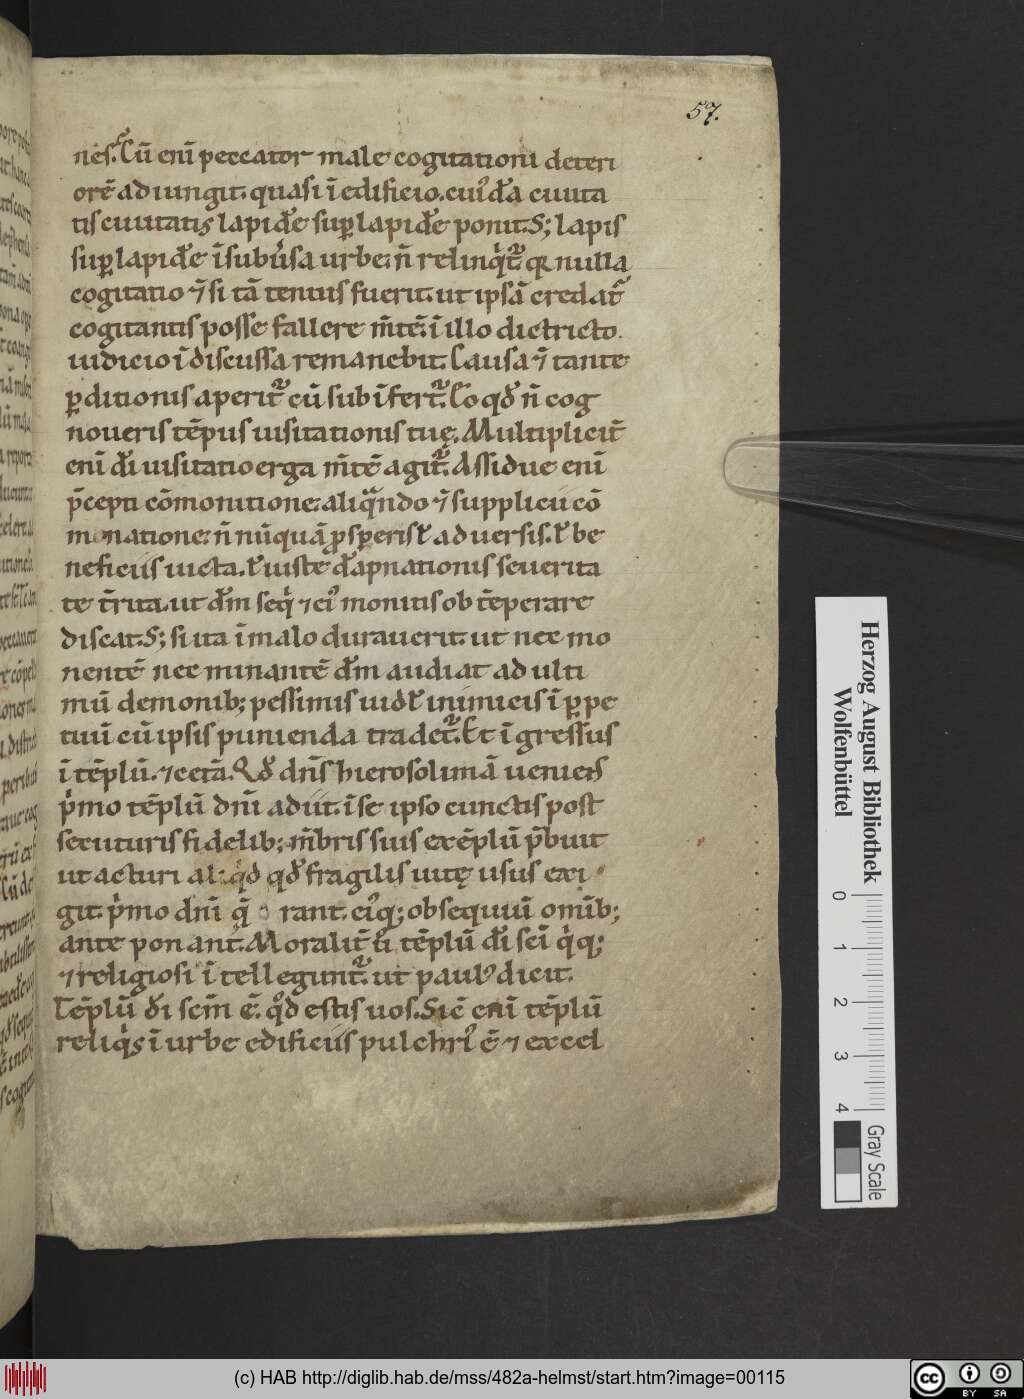 57.
nes. Cū enī peccator male cogitationi deteri
orē adiungit. quasi ī edificio. cuiꝰdā ciuita
tis ciuitatis lapidē suꝑ lapidē ponit. S; lapis
suꝑ lapidē ī subūsa urbe. n̄ relinqͥtᷣ. qꝛ nulla
cogitatio ⁊̄ si tā tentus fuerit. ut ipsā credatᷣ
cogitantis posse fallere m̄tē. ī illo districto
iudicio ī discussa remanebit. Causa ⁊̄ tante
ꝑditionis aperitᷣ cū sub īfertᷣ. Eo qđ n̄ cog
noueris tēpus uisitationis tuę. Multiplicit̄
enī di̅ uisitatio erga m̄tē agitᷣ. Assidue enī
p̄cepti cōmonitione. aliqᷓndo ⁊̄ supplicii cō
monatione. n̄ nūquā ꝓsperis ł aduersis. ł be
neficiis uicta. ł iuste dāpnationis seuerita
te t̄rita. ut dn̄m seqͥ ⁊ eiꝰ monitis obtēperare
discat. S; si ita ī malo durauerit. ut nec mo
nentē nec minantē dn̄m audiat ad ulti
mū demonib; pessimis uidł inimicis ī ꝑpe
tuū cū ipsis punienda tradetᷣ. Et īgressus
ī tēplū. ⁊ cetā. Qđ dn̄s hierosolimā ueniens
pͥmo tēplū dnī adiit. ī se ipso cunctis post
secuturis fidelib; m̄bris suis exēplū p̄buit
ut acturi al qͥd qđ fragilis uitę usus exi
git. pͥmo dnī rant. eiꝰq; obsequiū omīb;
ante ponant. Moralit̄ tēplū di̅ scī qͥq;
⁊ religiosi ītelleguntᷣ. ut paulꝰ dicit.
Tēplū di̅ scm̄ ē. qͦd estis uos. Sic enī tēplū
reliqͥs ī urbe edificiis pulchriꝰ ē ⁊ excel
Herzog August Bibliothek
Wolfenbüttel
0 1 2 3 4
Gray Scale
(c) HAB http://diglib.hab.de/mss/482a-helmst/start.htm?image=00115
cc BY SA